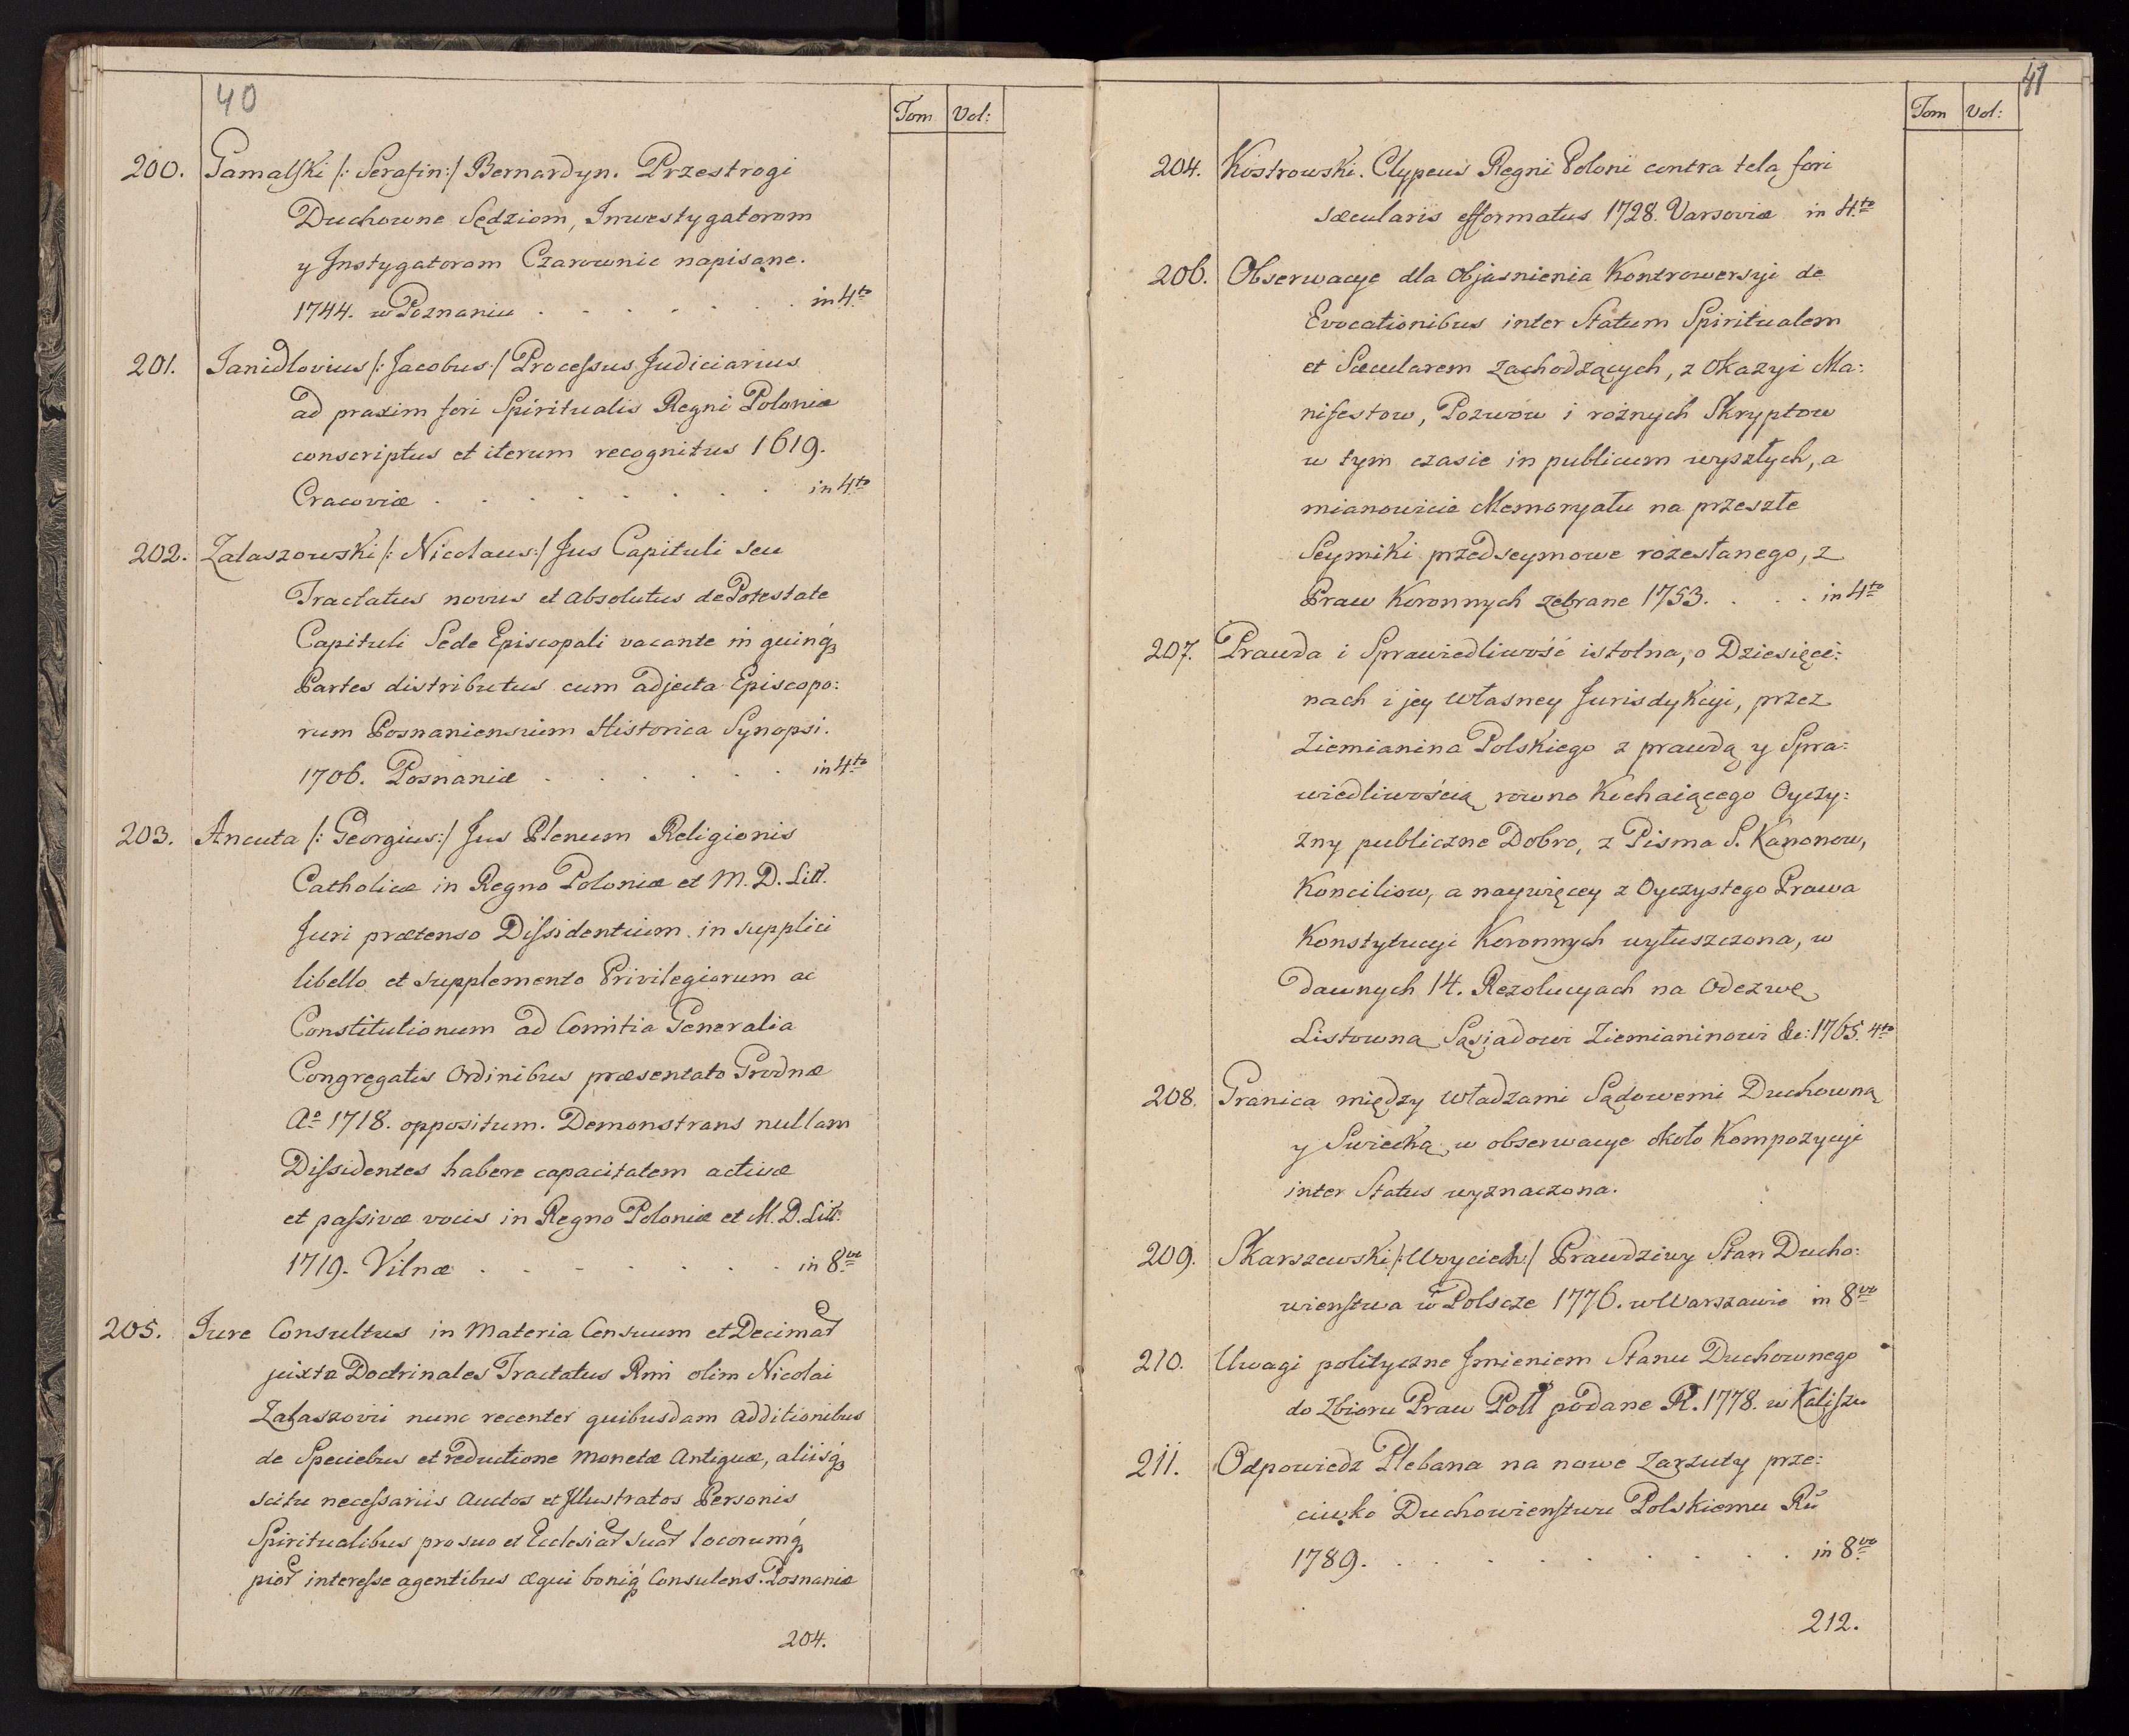 40
Tom Vol:
200. Gamalſki /: Serafin:/ Bernardyn. Przestrogi
Duchowne Sędziom, Inwestygatorom
y Instygatorom Czarownic napisane.
1744. w Poznaniu . . . . . . in 4.to
201. Janidlovius /: Jacobus:/ Proceſsus Judiciarius
ad praxim fori Spiritualis Regni Poloniæ
conscriptus et iterum recognitus 1619.
Cracoviæ . . . . . . . . in 4.to
202. Zalaszowski /: Nicolaus:/ Jus Capituli seu
Tractatus novus et absolutus de Potestate
Capituli Sede Episcopali vacante in quinq́ꝫ
Partes distributus cum adjecta Episcopo:
rum Posnaniensium Historica Synopsi.
1706. Posnaniæ . . . . . . in 4.to
203. Ancuta /: Georgius:/ Jus Plenum Religionis
Catholicæ in Regno Poloniæ et M. D. Litt.
Juri prætenso Diſsidentium in supplici
libello et supplemento Privilegiorum ac
Constitutionum ad Comitia Generalia
Congregatis Ordinibus præsentato Grodnæ
Aº 1718. oppositum. Demonstrans nullam
Diſsidentes habere capacitatem activæ
et paſsivæ vocis in Regno Poloniæ et M. D. Litt.
1719. Vilnæ . . . . . . . in 8.vo
205. Jure Consultus in Materia Censuum et Decimaꝝ
juxta Doctrinales Tractatus Rmi olim Nicolai
Zalaszovii nunc recenter quibusdam additionibus
de Speciebus et reductione Monetæ Antiquæ, aliisq́ꝫ
scitu neceſsariis auctos et Illustratos Personis
Spiritualibus pro suo et Ecclesiaꝝ suaꝝ locorumq́ꝫ
pioꝝ intereſse agentibus æqui boniq́ꝫ Consulens. Posnaniæ
204.
41
Tom Vol:
204. Kostrowski. Clypeus Regni Poloni contra tela fori
sæcularis efformatus 1728. Varsoviæ in 4.to
206. Obserwacye dla Objasnienia Kontrowersyi de
Evocationibus inter Statum Spiritualem
et Sæcularem zachodzących, z Okazyi Ma:
nifestow, Pozwow i roznych Skryptow
w tym czasie in publicum wyszłych, a
mianowicie Memoryału na przeszłe
Seymiki przedseymowe rozesłanego, z
Praw Koronnych zebrane 1753. . . . in 4to
207. Prawda i Sprawiedliwość istotna, o Dziesięci:
nach i jey własney Jurisdykcyi, przez
Ziemianina Polskiego z prawdą y Spra:
wiedliwością rowno Kochaiącego Oyczy:
zny publiczne Dobro, z Pisma S. Kanonow,
Konciliow, a naywięcey z Oyczystego Prawa
Konstytucyi Koronnych wyłuszczona, w
dawnych 14. Rezolucyach na Odezwę
Listowną Sąsiadowi Ziemianinowi &c: 1765. 4to
208. Granica między Władzami Sądowemi Duchowną
y Swiecką w obserwacye około Kompozycyi
inter Status wyznaczona.
209. Skarszewski /: Woyciech:/ Prawdziwy Stan Ducho:
wienſtwa w Polscze 1776. w Warszawie in 8vo
210. Uwagi polityczne Imieniem Stanu Duchownego
do Zbioru Praw Poll podane R. 1778. w Kaliſzu
211. Odpowiedz Plebana na nowe Zarzuty prze:
ciwko Duchowienſtwu Polskiemu Ru
1789. . . . . . . . . . in 8.vo
212.